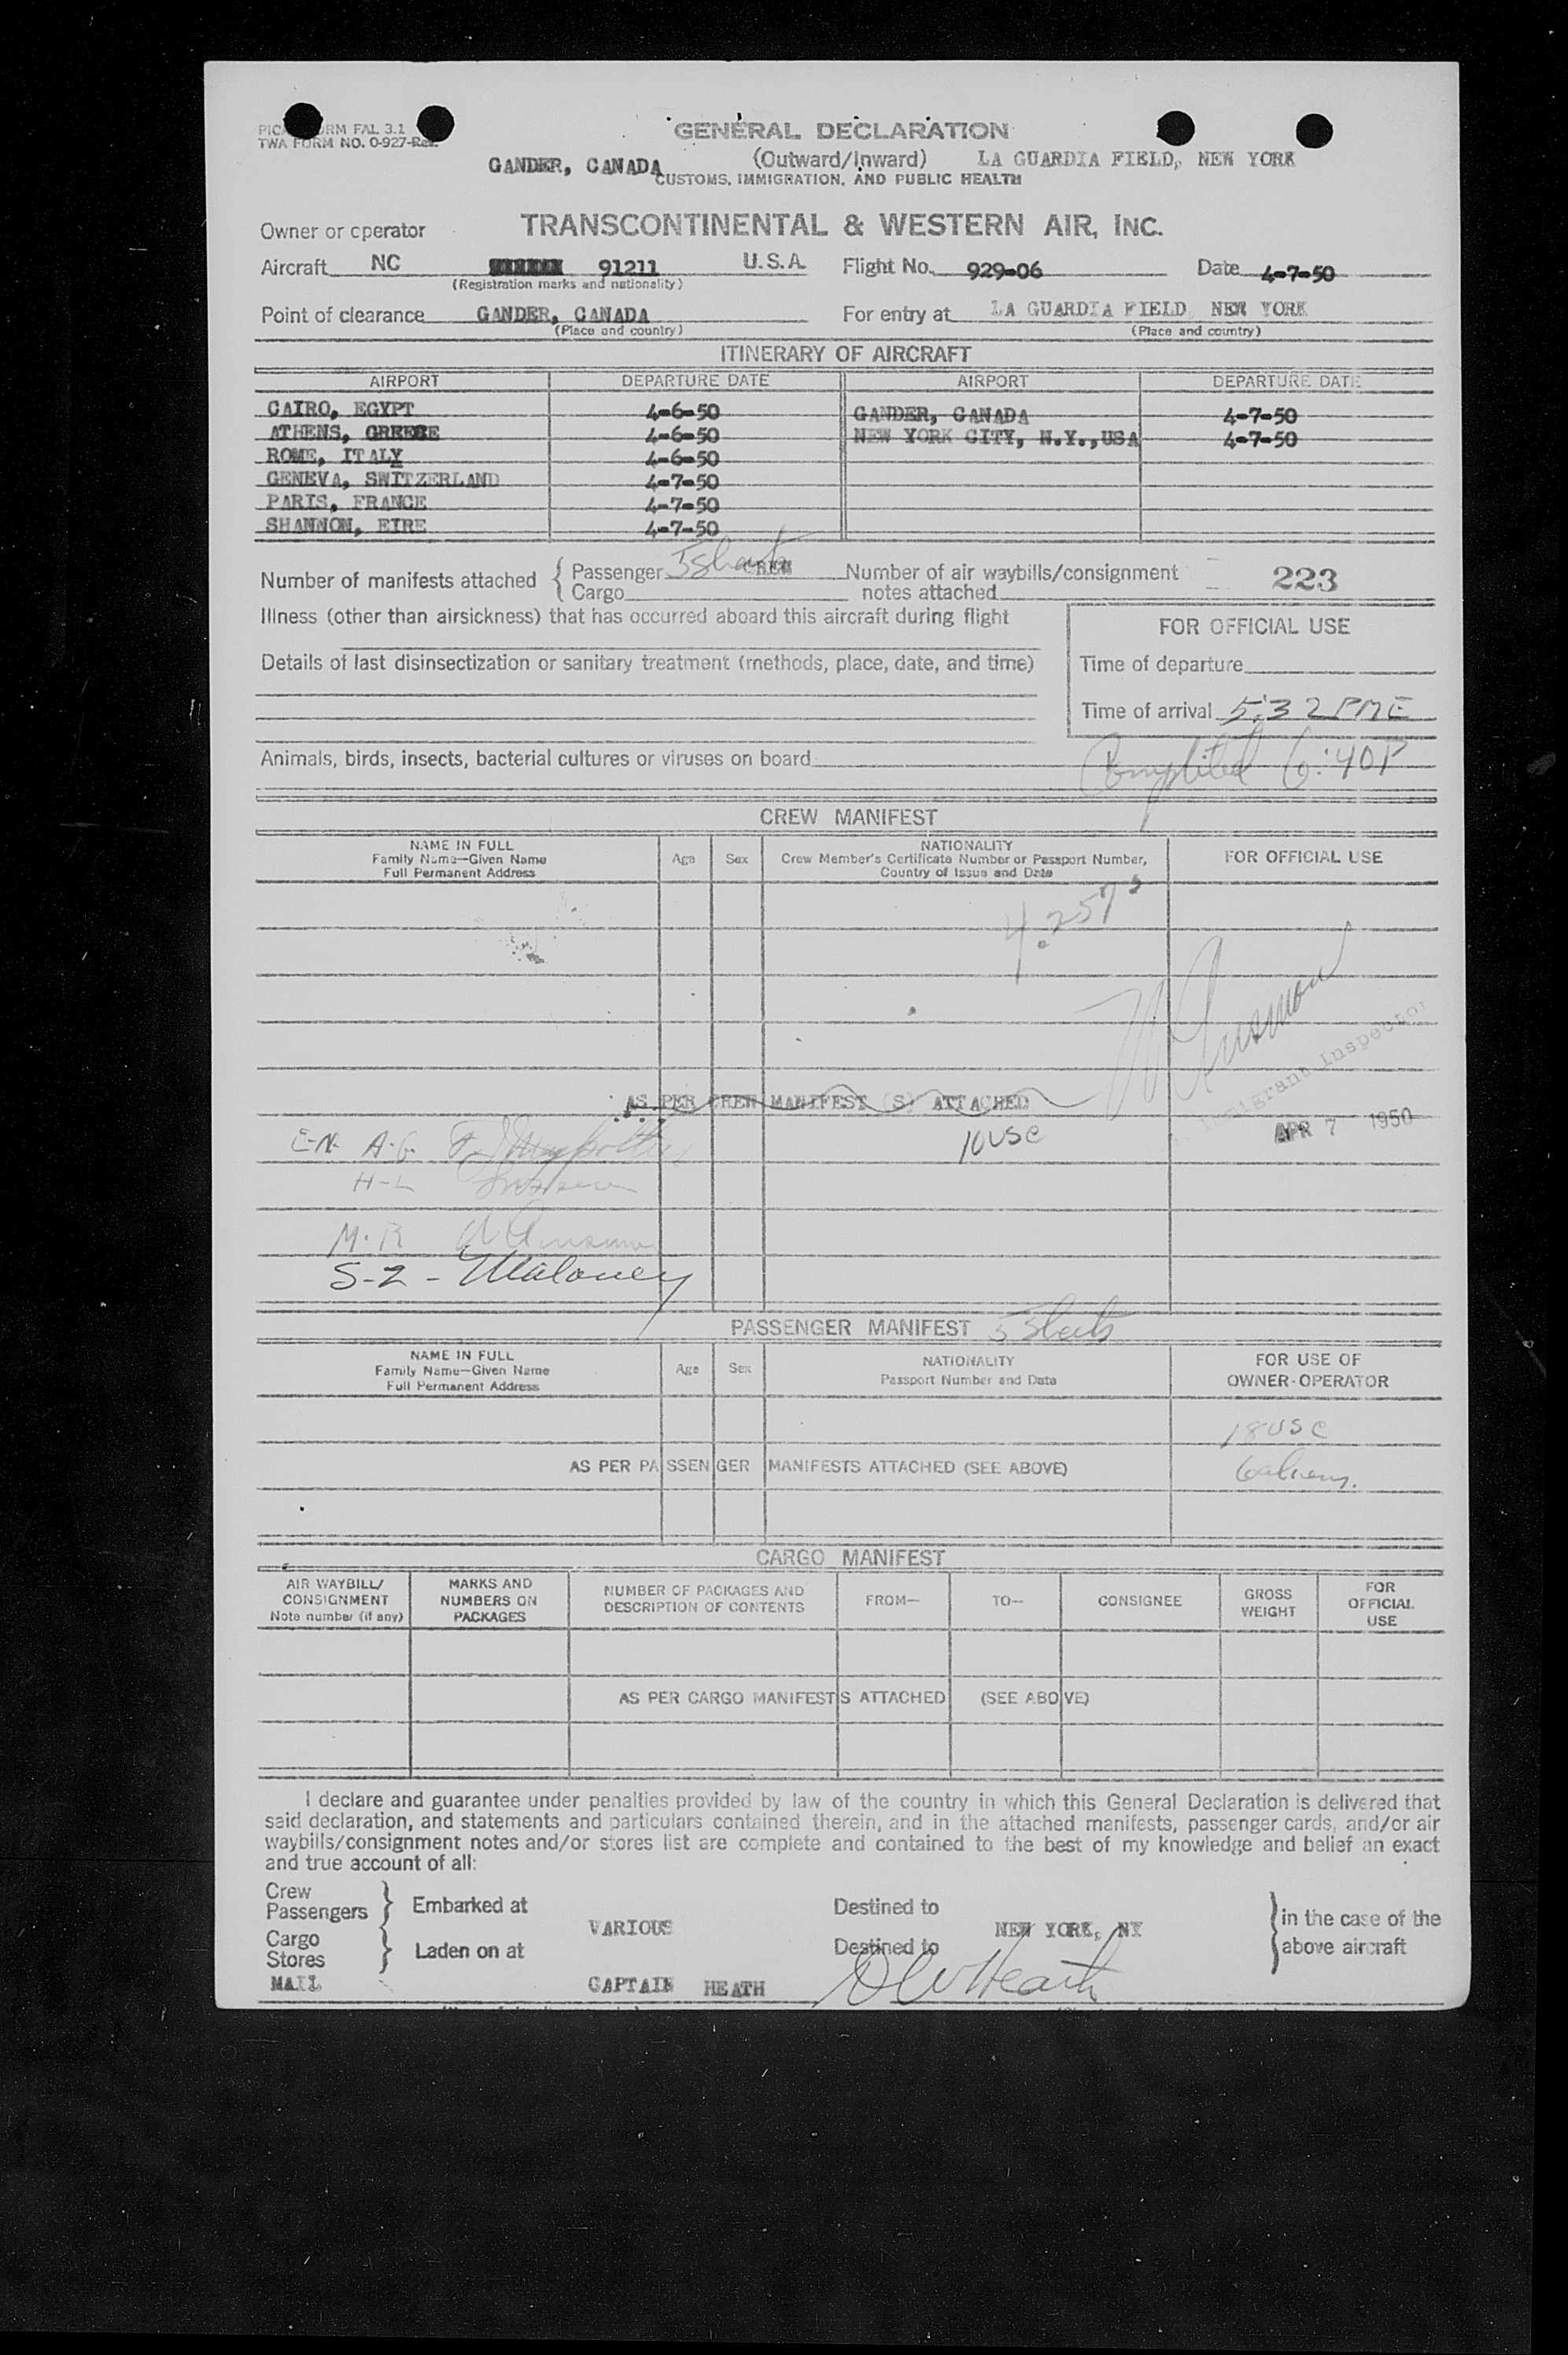 PICAO FORM FAL 3.1
TWA FORM NO. O-927-Rev.
GENERAL DECLARATION
GANDER, CANADA (Outward/Inward) LA GUARDIA FIELD, NEW YORK
CUSTOMS, IMMIGRATION, AND PUBLIC HEALTH
Owner or operator TRANSCONTINENTAL & WESTERN AIR, INC.
Aircraft NC 91211 U.S.A. Flight No. 929-06 Date 4-7-50
(Registration marks and nationality)
Point of clearance GANDER, CANADA For entry at LA GUARDIA FIELD, NEW YORK
(Place and country) (Place and country)
ITINERARY OF AIRCRAFT
AIRPORT DEPARTURE DATE AIRPORT DEPARTURE DATE
CAIRO, EGYPT 4-6-50 GANDER, CANADA 4-7-50
ATHENS, GREECE 4-6-50 NEW YORK CITY, N.Y.,USA 4-7-50
ROME, ITALY 4-6-50
GENEVA, SWITZERLAND 4-7-50
PARIS, FRANCE 4-7-50
SHANNON, EIRE 4-7-50
Number of manifests attached { Passenger 5 sheets CREW Number of air waybills/consignment 223
Cargo notes attached
Illness (other than airsickness) that has occurred aboard this aircraft during flight
FOR OFFICIAL USE
Details of last disinsectization or sanitary treatment (methods, place, date, and time)
Time of departure
Time of arrival 5:32 PME
Animals, birds, insects, bacterial cultures or viruses on board
Completed 6:40P
CREW MANIFEST
NAME IN FULL
Family Name—Given Name
Full Permanent Address
Age Sex
NATIONALITY
Crew Member's Certificate Number or Passport Number,
Country of Issue and Date
FOR OFFICIAL USE
4.25
Immigrant Inspector
AS PER CREW MANIFEST (S) ATTACHED
APR 7 1950
10 USC
E-N A-G
H-L
M-R
S-Z - Maloney
PASSENGER MANIFEST 5 Sheets
NAME IN FULL
Family Name—Given Name
Full Permanent Address
Age Sex
NATIONALITY
Passport Number and Date
FOR USE OF
OWNER-OPERATOR
18 USC
AS PER PASSENGER MANIFESTS ATTACHED (SEE ABOVE)
6 aliens.
CARGO MANIFEST
AIR WAYBILL/
CONSIGNMENT
Note number (if any)
MARKS AND
NUMBERS ON
PACKAGES
NUMBER OF PACKAGES AND
DESCRIPTION OF CONTENTS
FROM— TO— CONSIGNEE
GROSS
WEIGHT
FOR
OFFICIAL
USE
AS PER CARGO MANIFESTS ATTACHED (SEE ABOVE)
I declare and guarantee under penalties provided by law of the country in which this General Declaration is delivered that
said declaration, and statements and particulars contained therein, and in the attached manifests, passenger cards, and/or air
waybills/consignment notes and/or stores list are complete and contained to the best of my knowledge and belief an exact
and true account of all:
Crew
Passengers } Embarked at Destined to
VARIOUS NEW YORK, NY
} in the case of the
above aircraft
Cargo
Stores } Laden on at Destined to
MAIL CAPTAIN HEATH